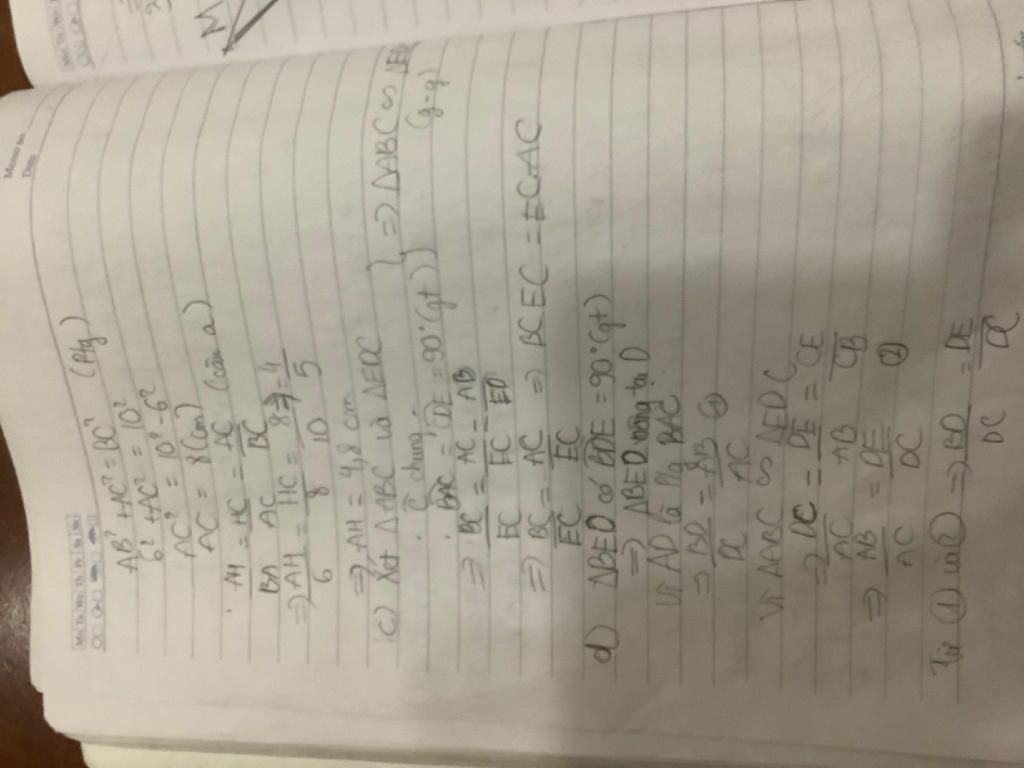 AB² + AC² = BC² (Ptg)
6² + AC² = 10²
AC² = 10² - 6²
AC = 8(cm)
AH/BA = HC/AC = AC/BC (câu a)
⇒ AH/6 = HC/8 = 8/10 = 4/5
⇒ AH = 4,8 cm
c) Xét ΔABC và ΔEDC
Ĉ chung
BAC = CDE = 90° (gt) } ⇒ ΔABC ∽ ΔEDC (g-g)
⇒ BC/EC = AC/EC = AB/ED
⇒ BC/EC = AC/EC ⇒ BC.EC = EC.AC
d) ΔBED có BDE = 90° (gt)
⇒ ΔBED vuông tại D
Vì AD là Pg BAC
⇒ BD/DC = AB/AC ①
Vì ΔABC ∽ ΔEDC
⇒ DC/AC = DE/AB = CE/CB
⇒ AB/AC = DE/DC ②
Từ ① và ② ⇒ BD/DC = DE/DC